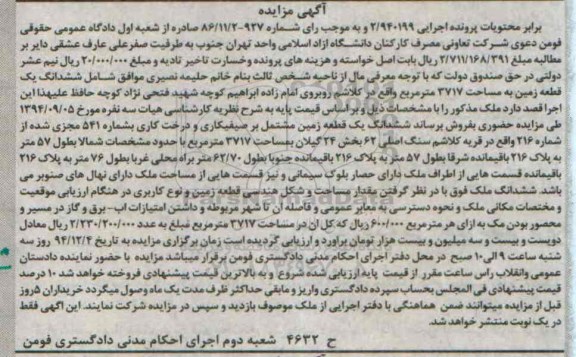 آگهی مزایده
برابر محتویات پرونده اجرایی ۲/۹۴۰۱۹۹ و به موجب رای شماره ۹۲۷-۸۶/۱۱/۲ صادره از شعبه اول دادگاه عمومی حقوقی
فومن دعوی شرکت تعاونی مصرف کارکنان دانشگاه ازاد اسلامی واحد تهران جنوب به طرفیت صفرعلی عارف عشقی دایر بر
مطالبه مبلغ ۲/۷۱۱/۱۶۸/۳۹۱ ریال بابت اصل خواسته و هزینه های پرونده وخسارت تاخیر تادیه و مبلغ ۲۰/۰۰۰/۰۰۰ ریال نیم عشر
دولتی در حق صندوق دولت که با توجه معرفی مال از ناحیه شخص ثالث بنام خانم حلیمه نصیری موافق شامل ششدانگ یک
قطعه زمین به مساحت ۳۷۱۷ مترمربع واقع در کلاشم روبروی امام زاده ابراهیم کوچه شهید فتحی نژاد کوچه حافظ علیهذا این
اجرا قصد دارد ملک مذکور را با مشخصات ذیل و بر اساس قیمت پایه به شرح نظریه کارشناسی هیات سه نفره مورخ ۱۳۹۴/۰۹/۰۵
طی مزایده حضوری بفروش برساند ششدانگ یک قطعه زمین مشتمل بر صیفیکاری و درخت کاری بشماره ۵۴۱ مجزی شده از
شماره ۲۱۶ واقع در قریه کلاشم سنگ اصلی ۶۲ بخش ۲۴ گیلان بمساحت ۳۷۱۷ مترمربع با حدود مشخصات شمالا بطول ۵۷ متر
به پلاک ۲۱۶ باقیمانده شرقا بطول ۵۷ متر به پلاک ۲۱۶ باقیمانده جنوبا بطول ۶۲/۷۰ متر براه محلی غربا بطول ۷۶ متر به پلاک ۲۱۶
باقیمانده قسمت هایی از اطراف ملک دارای حصار بلوک سیمانی و نیز قسمت هایی از مساحت ملک دارای نهال های صنوبر می
باشد. ششدانگ ملک فوق با در نظر گرفتن مقدار مساحت و شکل هندسی قطعه زمین و نوع کاربری در هنگام ارزیابی موقعیت
و مختصات مکانی ملک و نحوه دسترسی به معابر عمومی و فاصله آن تا شهر مربوطه و داشتن امتیازات آب-برق و گاز در مسیر و
محصور بودن مک به ازای هر مترمربع ۶۰۰/۰۰۰ ریال که کل ان در مساحت ۳۷۱۷ مترمربع مبلغ به عدد ۲/۲۳۰/۲۰۰/۰۰۰ ریال معادل
دویست و بیست و سه میلیون و بیست هزار تومان برآورد و ارزیابی گردیده است زمان برگزاری مزایده به تاریخ ۹۴/۱۲/۴ روز سه
شنبه ساعت ۹ الی ۱۰ صبح در محل دفتر اجرای احکام مدنی دادگستری فومن برقرار میباشد مزایده با حضور نماینده دادستان
عمومی وانقلاب راس ساعت مقرر از قیمت پایه ارزیابی شده شروع و به بالاترین قیمت پیشنهادی فروخته خواهد شد ۱۰ درصد
قیمت پیشنهادی فی المجلس بحساب سپرده دادگستری واریز و مابقی حداکثر ظرف مدت یک ماه وصول میگردد خریداران ۵روز
قبل از مزایده میتوانند ضمن هماهنگی با دفتر اجرایی از ملک موصوف بازدید و سپس در مزایده شرکت نمایند. این آگهی فقط
در یک نوبت منتشر خواهد شد.
ح ۴۶۳۲ شعبه دوم اجرای احکام مدنی دادگستری فومن